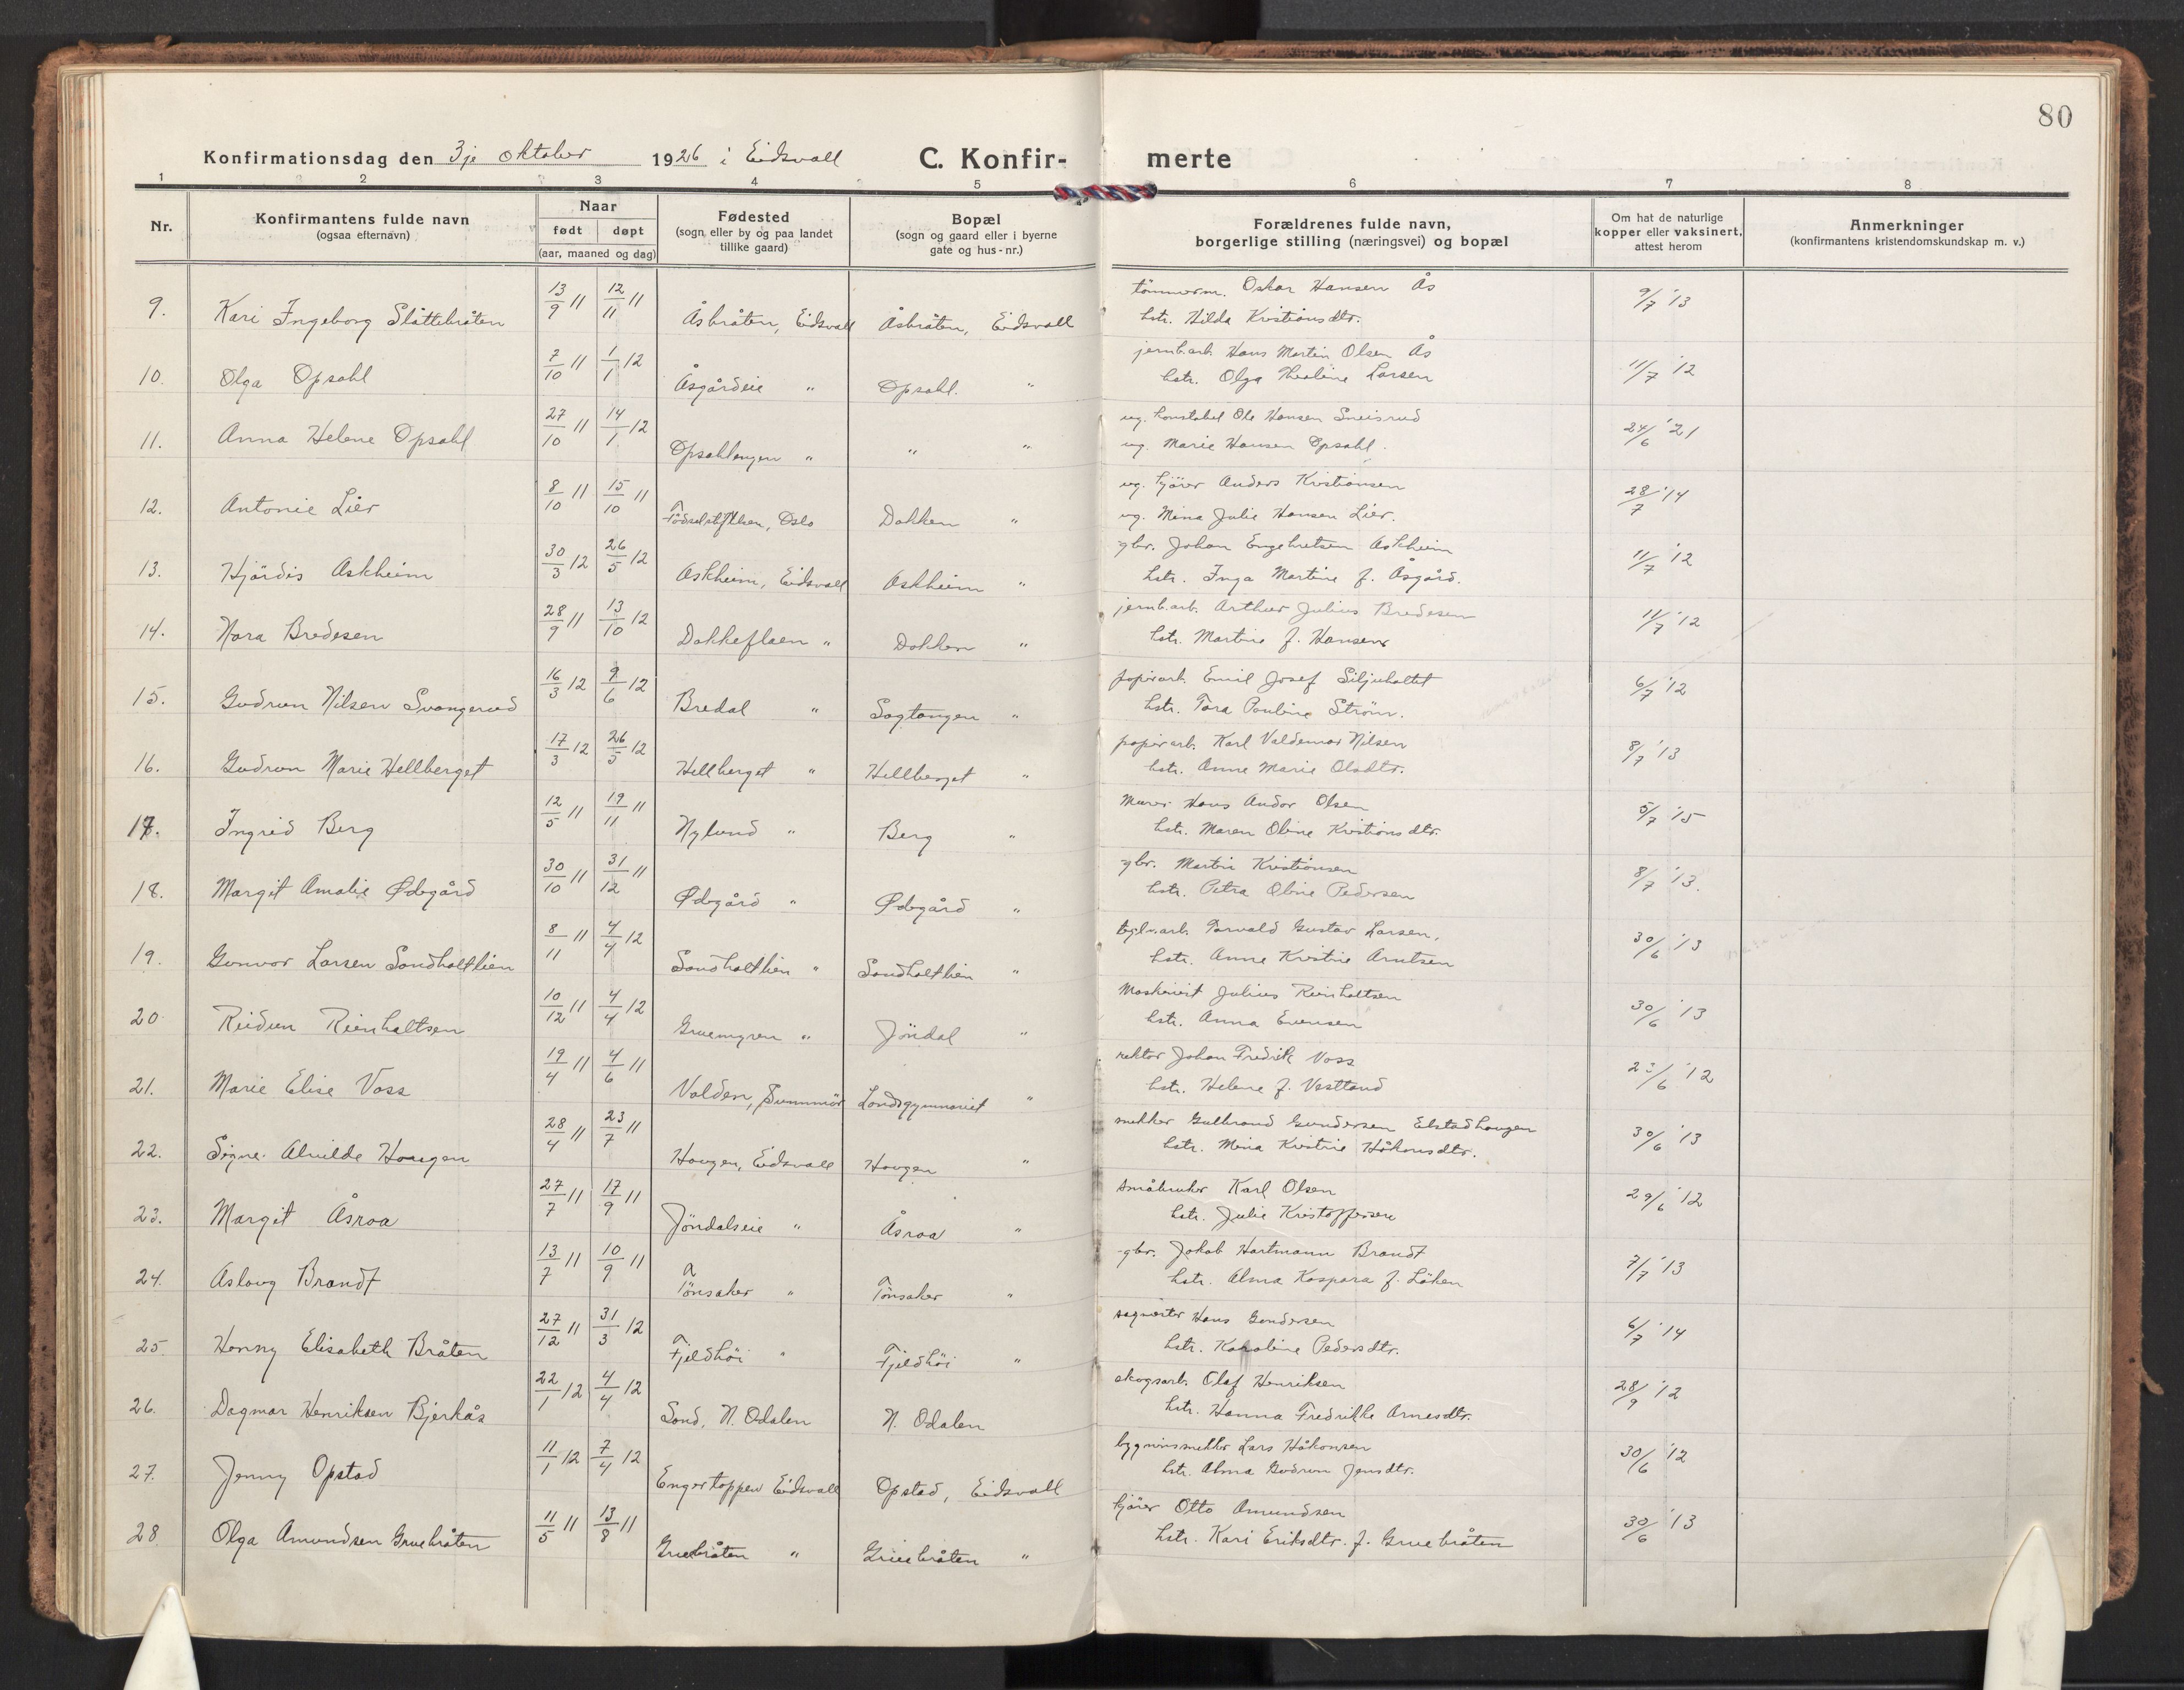 80
Konfirmationsdag den 3je oktober 1926 i Eidsvall C. Konfir- merte
1 2 3 4 5 6 7 8
Nr. Konfirmantens fulde navn (ogsaa efternavn) Naar født døpt (aar, maaned og dag) Fødested (sogn eller by og paa landet tillike gaard) Bopæl (sogn og gaard eller i byerne gate og hus-nr.) Forældrenes fulde navn, borgerlige stilling (næringsvei) og bopæl Om hat de naturlige kopper eller vaksinert, attest herom Anmerkninger (konfirmantens kristendomskundskap m. v.)
9. Kari Ingeborg Slåttebråten 13/9 11 12/11 11 Åsbråten, Eidsvall Åsbråten, Eidsvall tömmerm. Oskar Hansen Ås 9/7 '13
hstr. Hilda Kristiansdtr.
10. Olga Opsahl 7/10 11 1/1 12 Åsgårdeie " Opsahl. " jernb.arb. Hans Martin Olsen Ås 11/7 '12
hstr. Olga Thealine Larsen
11. Anna Helene Opsahl 27/10 11 14/1 12 Opsahlengen " " " ug. konstabel Ole Hansen Sneisrud 24/6 '21
ug. Marie Hansen Opsahl.
12. Antonie Lier 8/10 11 15/10 11 Födselstiftelsen, Oslo Dokken " ug. kjörer Anders Kristiansen 28/7 '14
ug. Mina Julie Hansen Lier.
13. Hjördis Askheim 30/3 12 26/5 12 Askheim, Eidsvall Askheim " gbr. Johan Engebretsen Askheim 11/7 '12
hstr. Inga Martine f. Åsgård.
14. Nora Bredesen 28/9 11 13/10 12 Dokkeflaen " Dokken " jernb.arb. Arthur Julius Bredesen 11/7 '12
hstr. Martine f. Hansen
15. Gudrun Nilsen Svangerud 16/3 12 9/6 12 Bredal " Sagtangen " papirarb. Emil Josef Siljuholtet 6/7 '12
hstr. Tora Pauline Ström.
16. Gudrun Marie Hellberget 17/3 12 26/5 12 Hellberget " Hellberget " papirarb. Karl Valdemar Nilsen 8/7 '13
hstr. Anne Marie Olsdtr.
17. Ingrid Berg 12/5 11 19/11 11 Nylund " Berg " Murer Hans Andor Olsen 5/7 '15
hstr. Maren Oline Kristiansdtr.
18. Margit Amalie Ødegård 30/10 11 31/12 11 Ødegård " Ødegård " gbr. Martin Kristiansen 8/7 '13.
hstr. Petra Oline Pedersen
19. Gunvor Larsen Sandholtlien 8/11 11 4/4 12 Sandholtlien " Sandholtlien " teglv.arb. Torvald Gustav Larsen, 30/6 '13
hstr. Anne Kristine Arntsen
20 Reidun Reinholtsen 10/12 11 4/4 12 Gruemyren " Jöndal " Maskinist Julius Reinholtsen 30/6 '13
hstr. Anna Evensen
21. Marie Elise Voss 19/4 11 4/6 11 Volden, Sunnmör Landsgymnasiet " rektor Johan Fredrik Voss 23/6 '12
hstr. Helene f. Vestland
22. Signe Alvilde Haugen 28/4 11 23/7 11 Haugen, Eidsvall Haugen " snekker Gulbrand Gundersen Elstadhaugen 30/6 '13
hstr. Mina Kristine Håkonsdtr.
23. Margit Åsroa 27/7 11 17/9 11 Jöndalseie " Åsroa " småbruker Karl Olsen 29/6 '12
hstr. Julie Kristoffersen
24. Aslaug Brandt 13/7 11 10/9 11 Tönsaker " Tönsaker " gbr. Jakob Hartmann Brandt 7/7 '13
hstr. Alma Kaspara f. Löken
25 Henny Elisabeth Bråten 27/12 11 31/3 12 Fjeldhöi " Fjeldhöi " sagmester Hans Gundersen 6/7 '14
hstr. Karoline Pedersdtr.
26. Dagmar Henriksen Bjerkås 22/1 12 4/4 12 Sand, N. Odalen N. Odalen skogsarb. Olaf Henriksen 28/9 '12
hstr. Hanna Fredrikke Arnesdtr.
27. Jenny Opstad 11/1 12 7/4 12 Engertoppen Eidsvall Opstad, Eidsvall bygninssnekker Lars Håkonsen 30/6 '12
hstr. Alma Gudrun Jensdtr.
28 Olga Amundsen Gruebråten 11/5 11 13/8 11 Gruebråten " Gruebråten " kjörer Otto Amundsen 30/6 '13
hstr. Kari Eriksdtr. f. Gruebråten